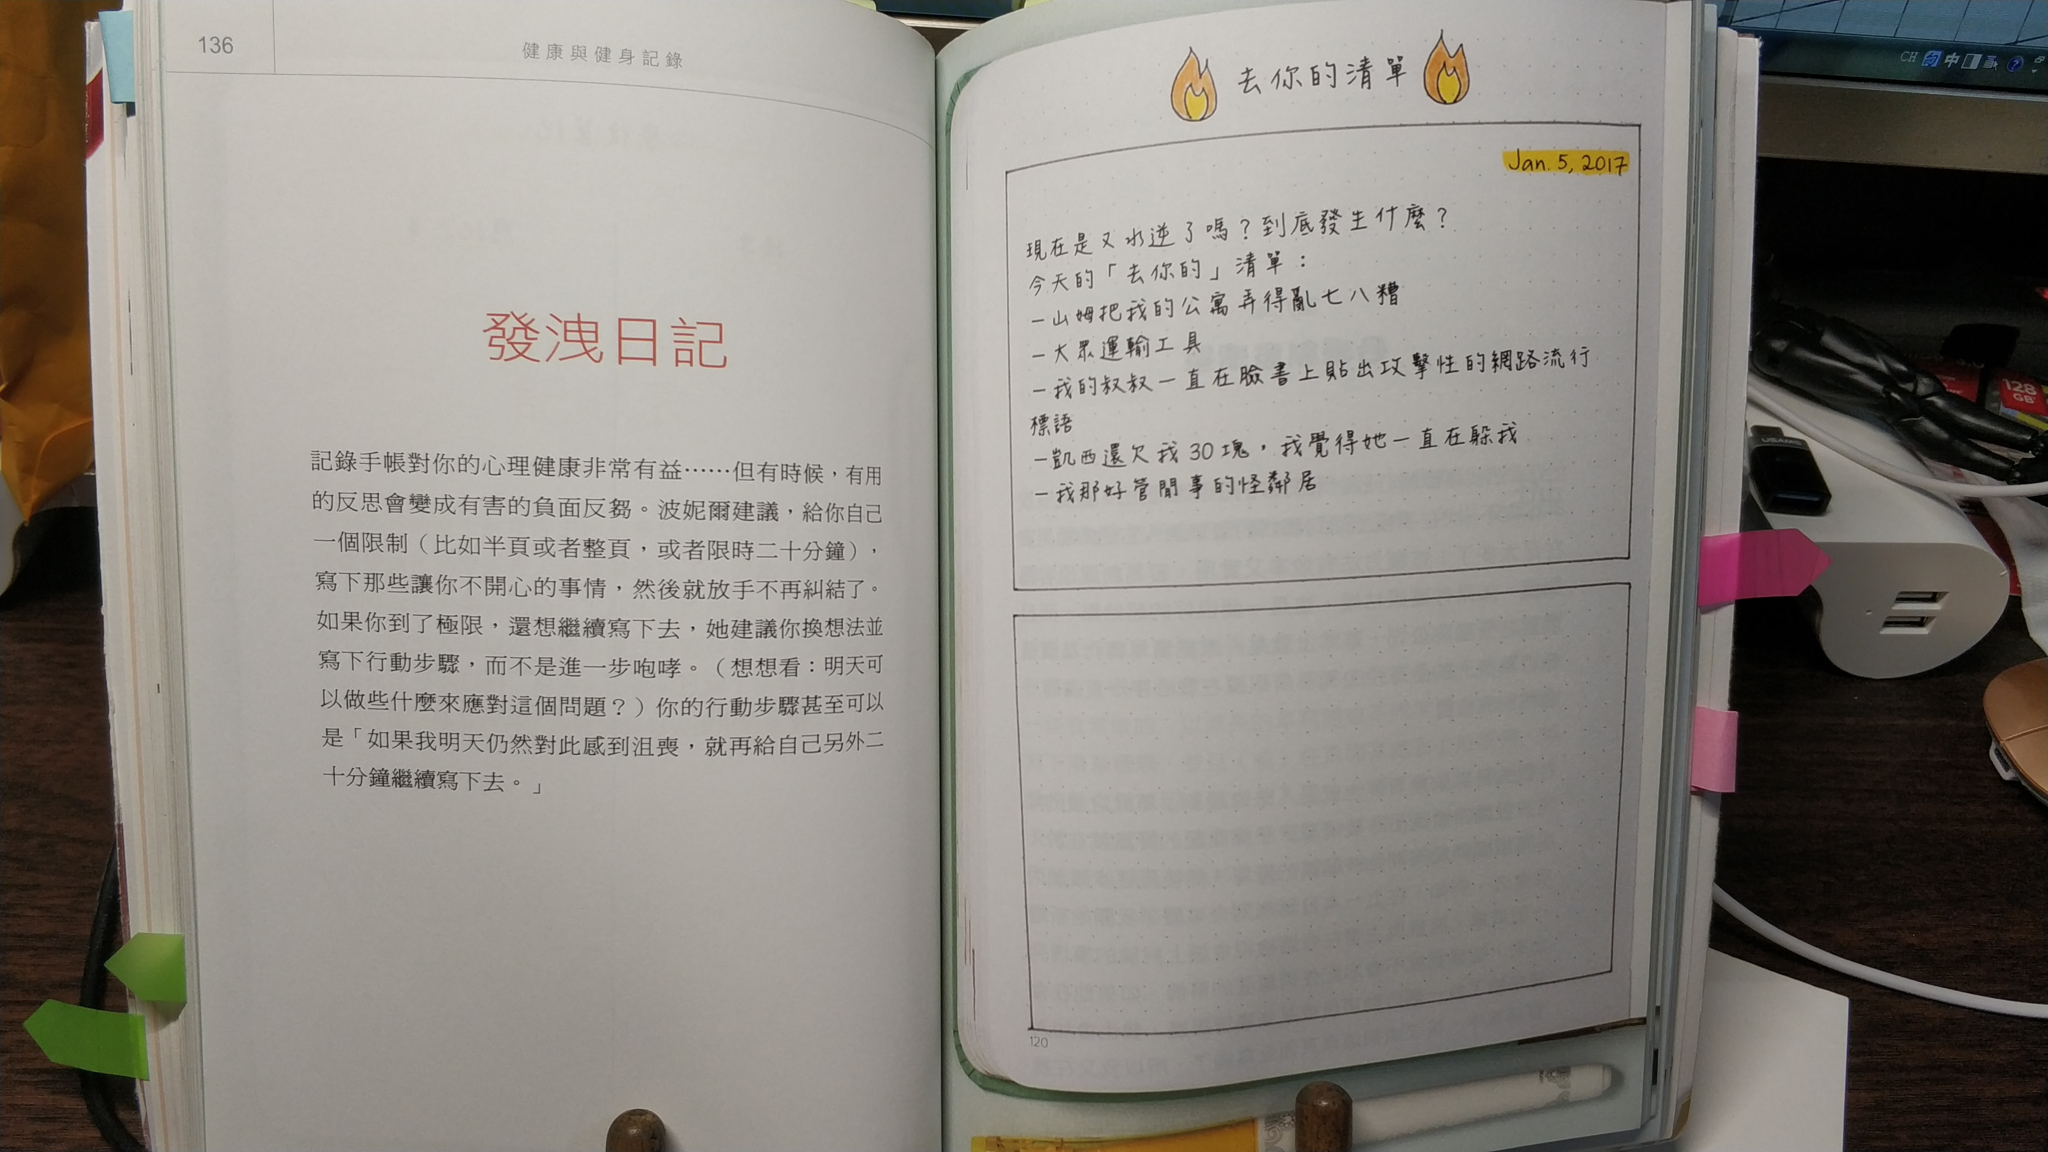 136
健康與健身記錄
發洩日記
記錄手帳對你的心理健康非常有益……但有時候，有用
的反思會變成有害的負面反芻。波妮爾建議，給你自己
一個限制（比如半頁或者整頁，或者限時二十分鐘），
寫下那些讓你不開心的事情，然後就放手不再糾結了。
如果你到了極限，還想繼續寫下去，她建議你換想法並
寫下行動步驟，而不是進一步咆哮。（想想看：明天可
以做些什麼來應對這個問題？）你的行動步驟甚至可以
是「如果我明天仍然對此感到沮喪，就再給自己另外二
十分鐘繼續寫下去。」
去你的清單
Jan. 5, 2017
現在是又水逆了嗎？到底發生什麼？
今天的「去你的」清單：
－山姆把我的公寓弄得亂七八糟
－大眾運輸工具
－我的叔叔一直在臉書上貼出攻擊性的網路流行
標語
－凱西還欠我30塊，我覺得她一直在躲我
－我那好管閒事的怪鄰居
120
CH
中
128
GB